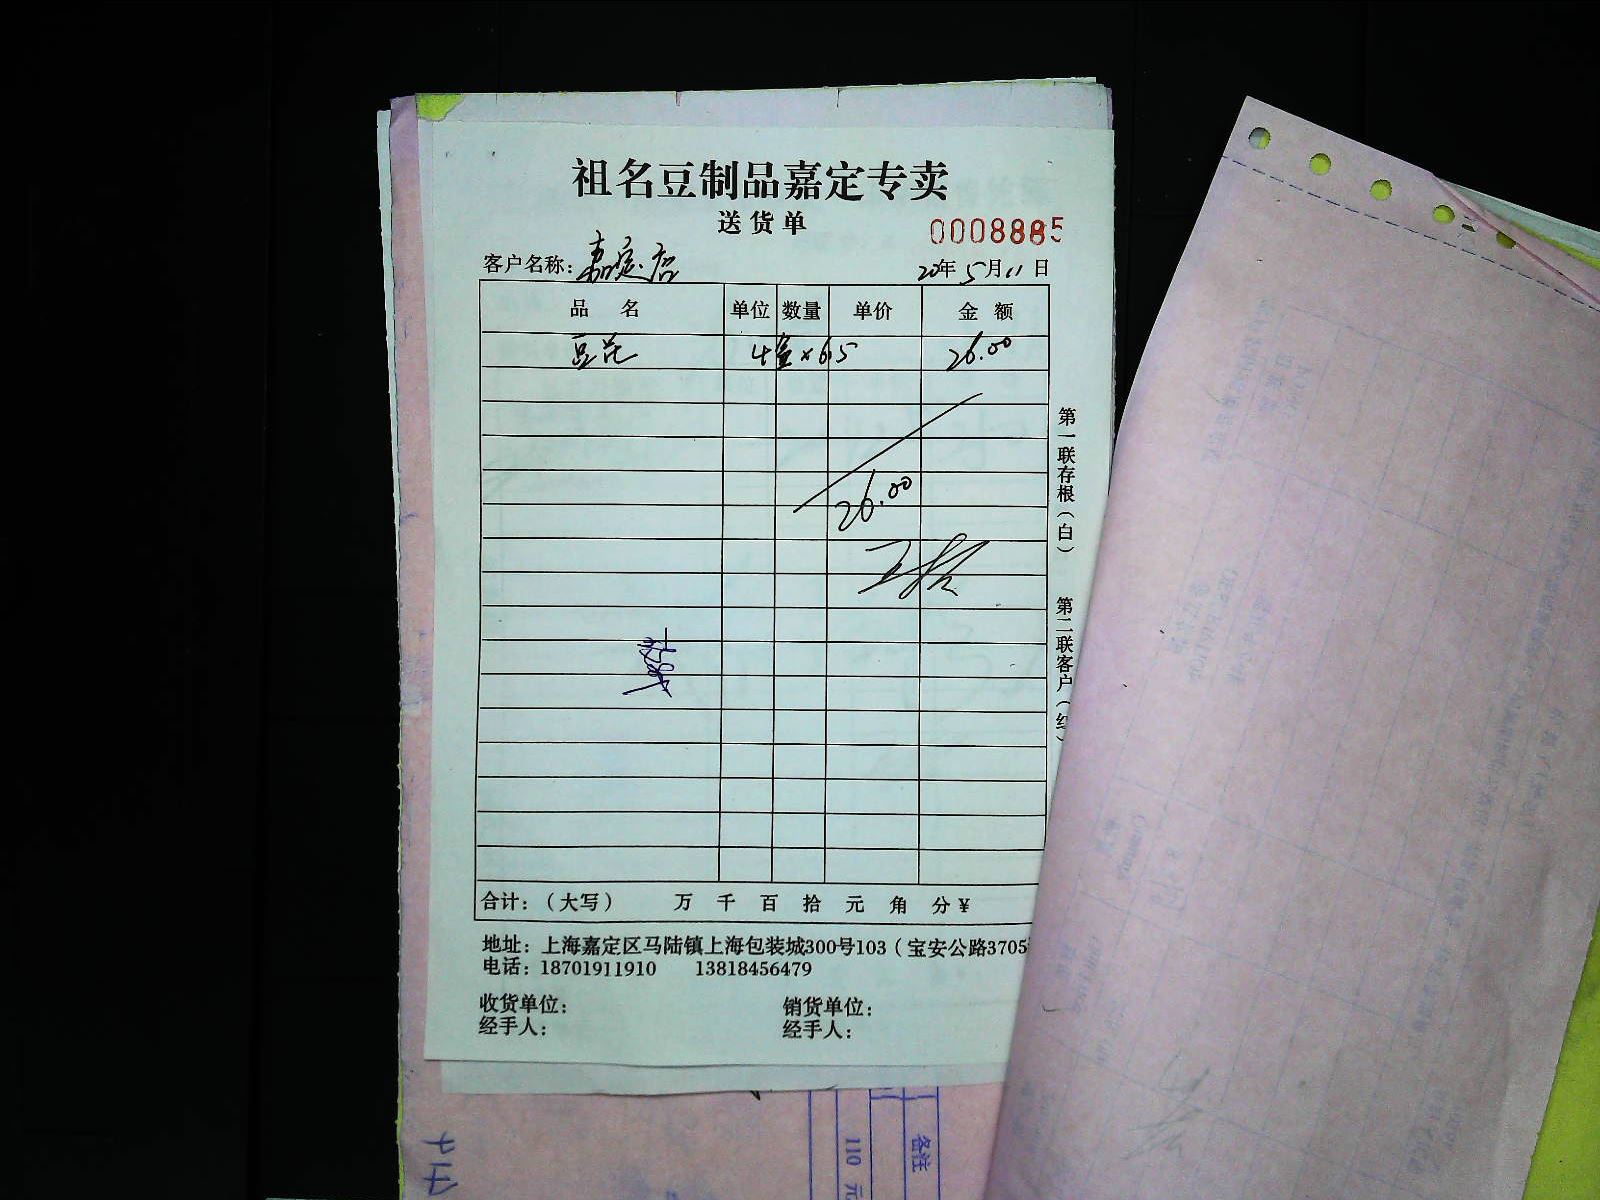 祖名豆制品嘉定专卖
送货单
0008885
客户名称：嘉定店 20年5月11日
品名 单位 数量 单价 金额
豆花 4盒×6.5 26.00
26.00
第一联存根（白）
第二联客户（红）
合计：（大写） 万 千 百 拾 元 角 分￥
地址：上海嘉定区马陆镇上海包装城300号103（宝安公路3705
电话：18701911910 13818456479
收货单位： 销货单位：
经手人： 经手人：
备注
110 元